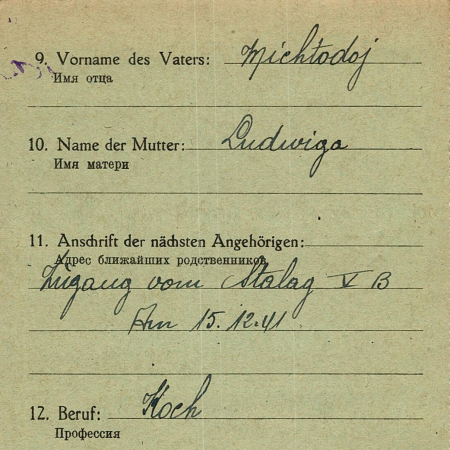 9. Vorname des Vaters: Michtodoj
Имя отца
10. Name der Mutter: Ludwiga
Имя матери
11. Anschrift der nächsten Angehörigen:
Адрес ближайших родственников
Zugang vom Stalag V B
Am 15.12.41.
12. Beruf: Koch
Профессия